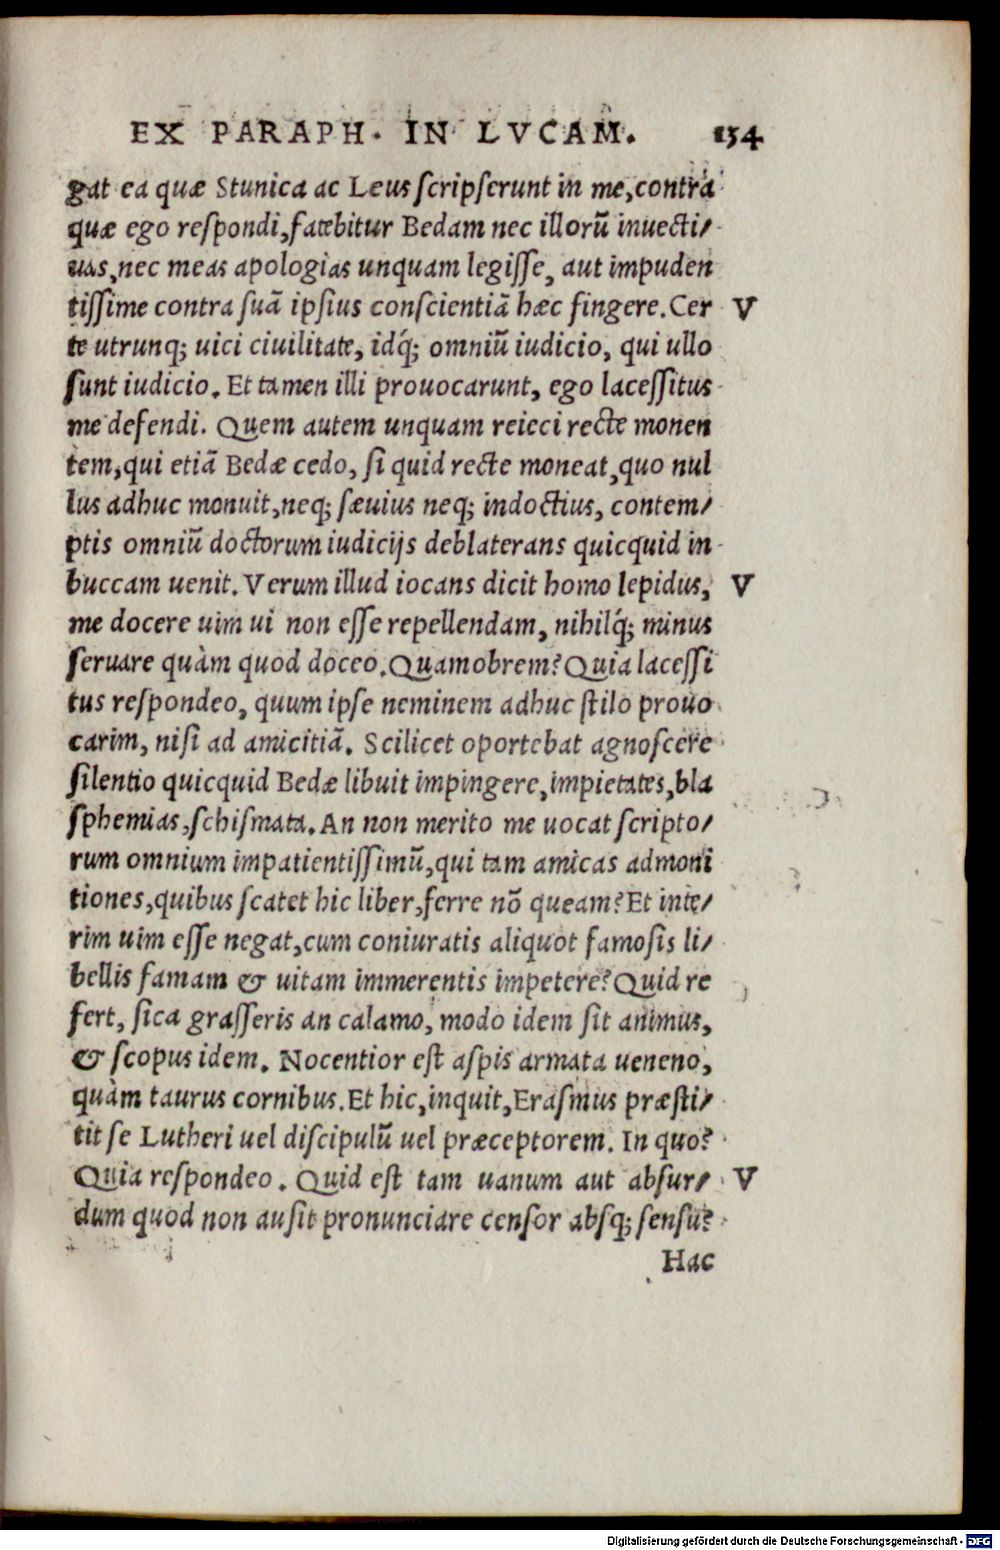 EX PARAPH. IN LVCAM. 154
gat ea quæ Stunica ac Leus ſcripſerunt in me, contra
quæ ego reſpondi, fatebitur Bedam nec illorũ inuecti/
uas, nec meas apologias unquam legiſſe, aut impuden
tiſſime contra ſuã ipſius conſcientiã hæc fingere. Cer V
te utrunq; uici ciuilitate, idq́; omniũ iudicio, qui ullo
ſunt iudicio. Et tamen illi prouocarunt, ego laceſſitus
me defendi. Quem autem unquam reieci recte monen
tem, qui etiã Bedæ cedo, ſi quid recte moneat, quo nul
lus adhuc monuit, neq; ſæuius neq; indoctius, contem/
ptis omniũ doctorum iudicijs deblaterans quicquid in
buccam uenit. Verum illud iocans dicit homo lepidus, V
me docere uim ui non eſſe repellendam, nihilq́; minus
ſeruare quàm quod doceo. Quamobrem? Quia laceſſi
tus reſpondeo, quum ipſe neminem adhuc ſtilo prouo
carim, niſi ad amicitiã. Scilicet oportebat agnoſcere
ſilentio quicquid Bedæ libuit impingere, impietates, bla
ſphemias, ſchiſmata. An non merito me uocat ſcripto/
rum omnium impatientiſſimũ, qui tam amicas admoni
tiones, quibus ſcatet hic liber, ferre nõ queam? Et inte/
rim uim eſſe negat, cum coniuratis aliquot famoſis li/
bellis famam & uitam immerentis impetere? Quid re
fert, ſica graſſeris an calamo, modo idem ſit animus,
& ſcopus idem. Nocentior eſt aſpis armata ueneno,
quàm taurus cornibus. Et hic, inquit, Eraſmus præſti/
tit ſe Lutheri uel diſcipulũ uel præceptorem. In quo?
Quia reſpondeo. Quid eſt tam uanum aut abſur/ V
dum quod non auſit pronunciare cenſor abſq; ſenſu?
Hac
Digitalisierung gefördert durch die Deutsche Forschungsgemeinschaft - DFG